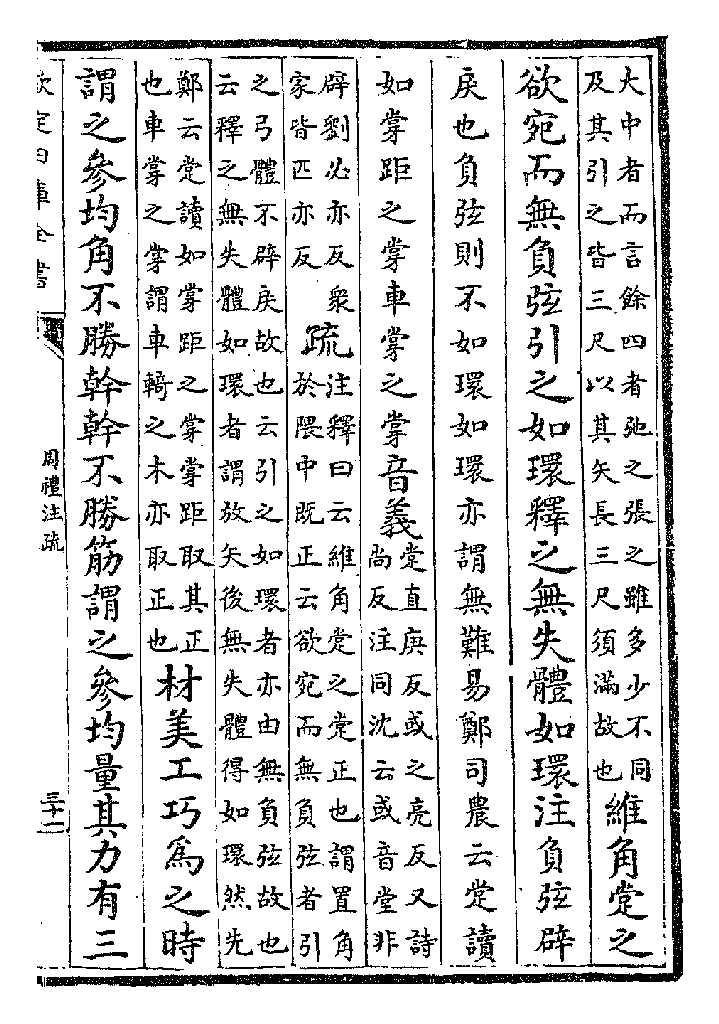 大中者而言餘四者弛之張之雖多少不同
及其引之皆三尺以其矢長三尺須滿故也
維角㱏之
欲宛而無負弦引之如環釋之無失體如環注負弦辟
戾也負弦則不如環如環亦謂無難易鄭司農云㱏讀
如牚距之牚車牚之牚音義
㱏直庚反或之亮反又詩
尚反注同沈云或音堂非
辟劉必亦反衆
家皆匹亦反
疏
注釋曰云維角㱏之㱏正也謂置角
於隈中既正云欲宛而無負弦者引
之弓體不辟戾故也云引之如環者亦由無負弦故也
云釋之無失體如環者謂放矢後無失體得如環然先
鄭云㱏讀如牚距之牚牚距取其正
也車牚之牚謂車輢之木亦取正也
材美工巧爲之時
謂之參均角不勝幹幹不勝筋謂之參均量其力有三
欽定四庫全書
周禮注疏
三十二